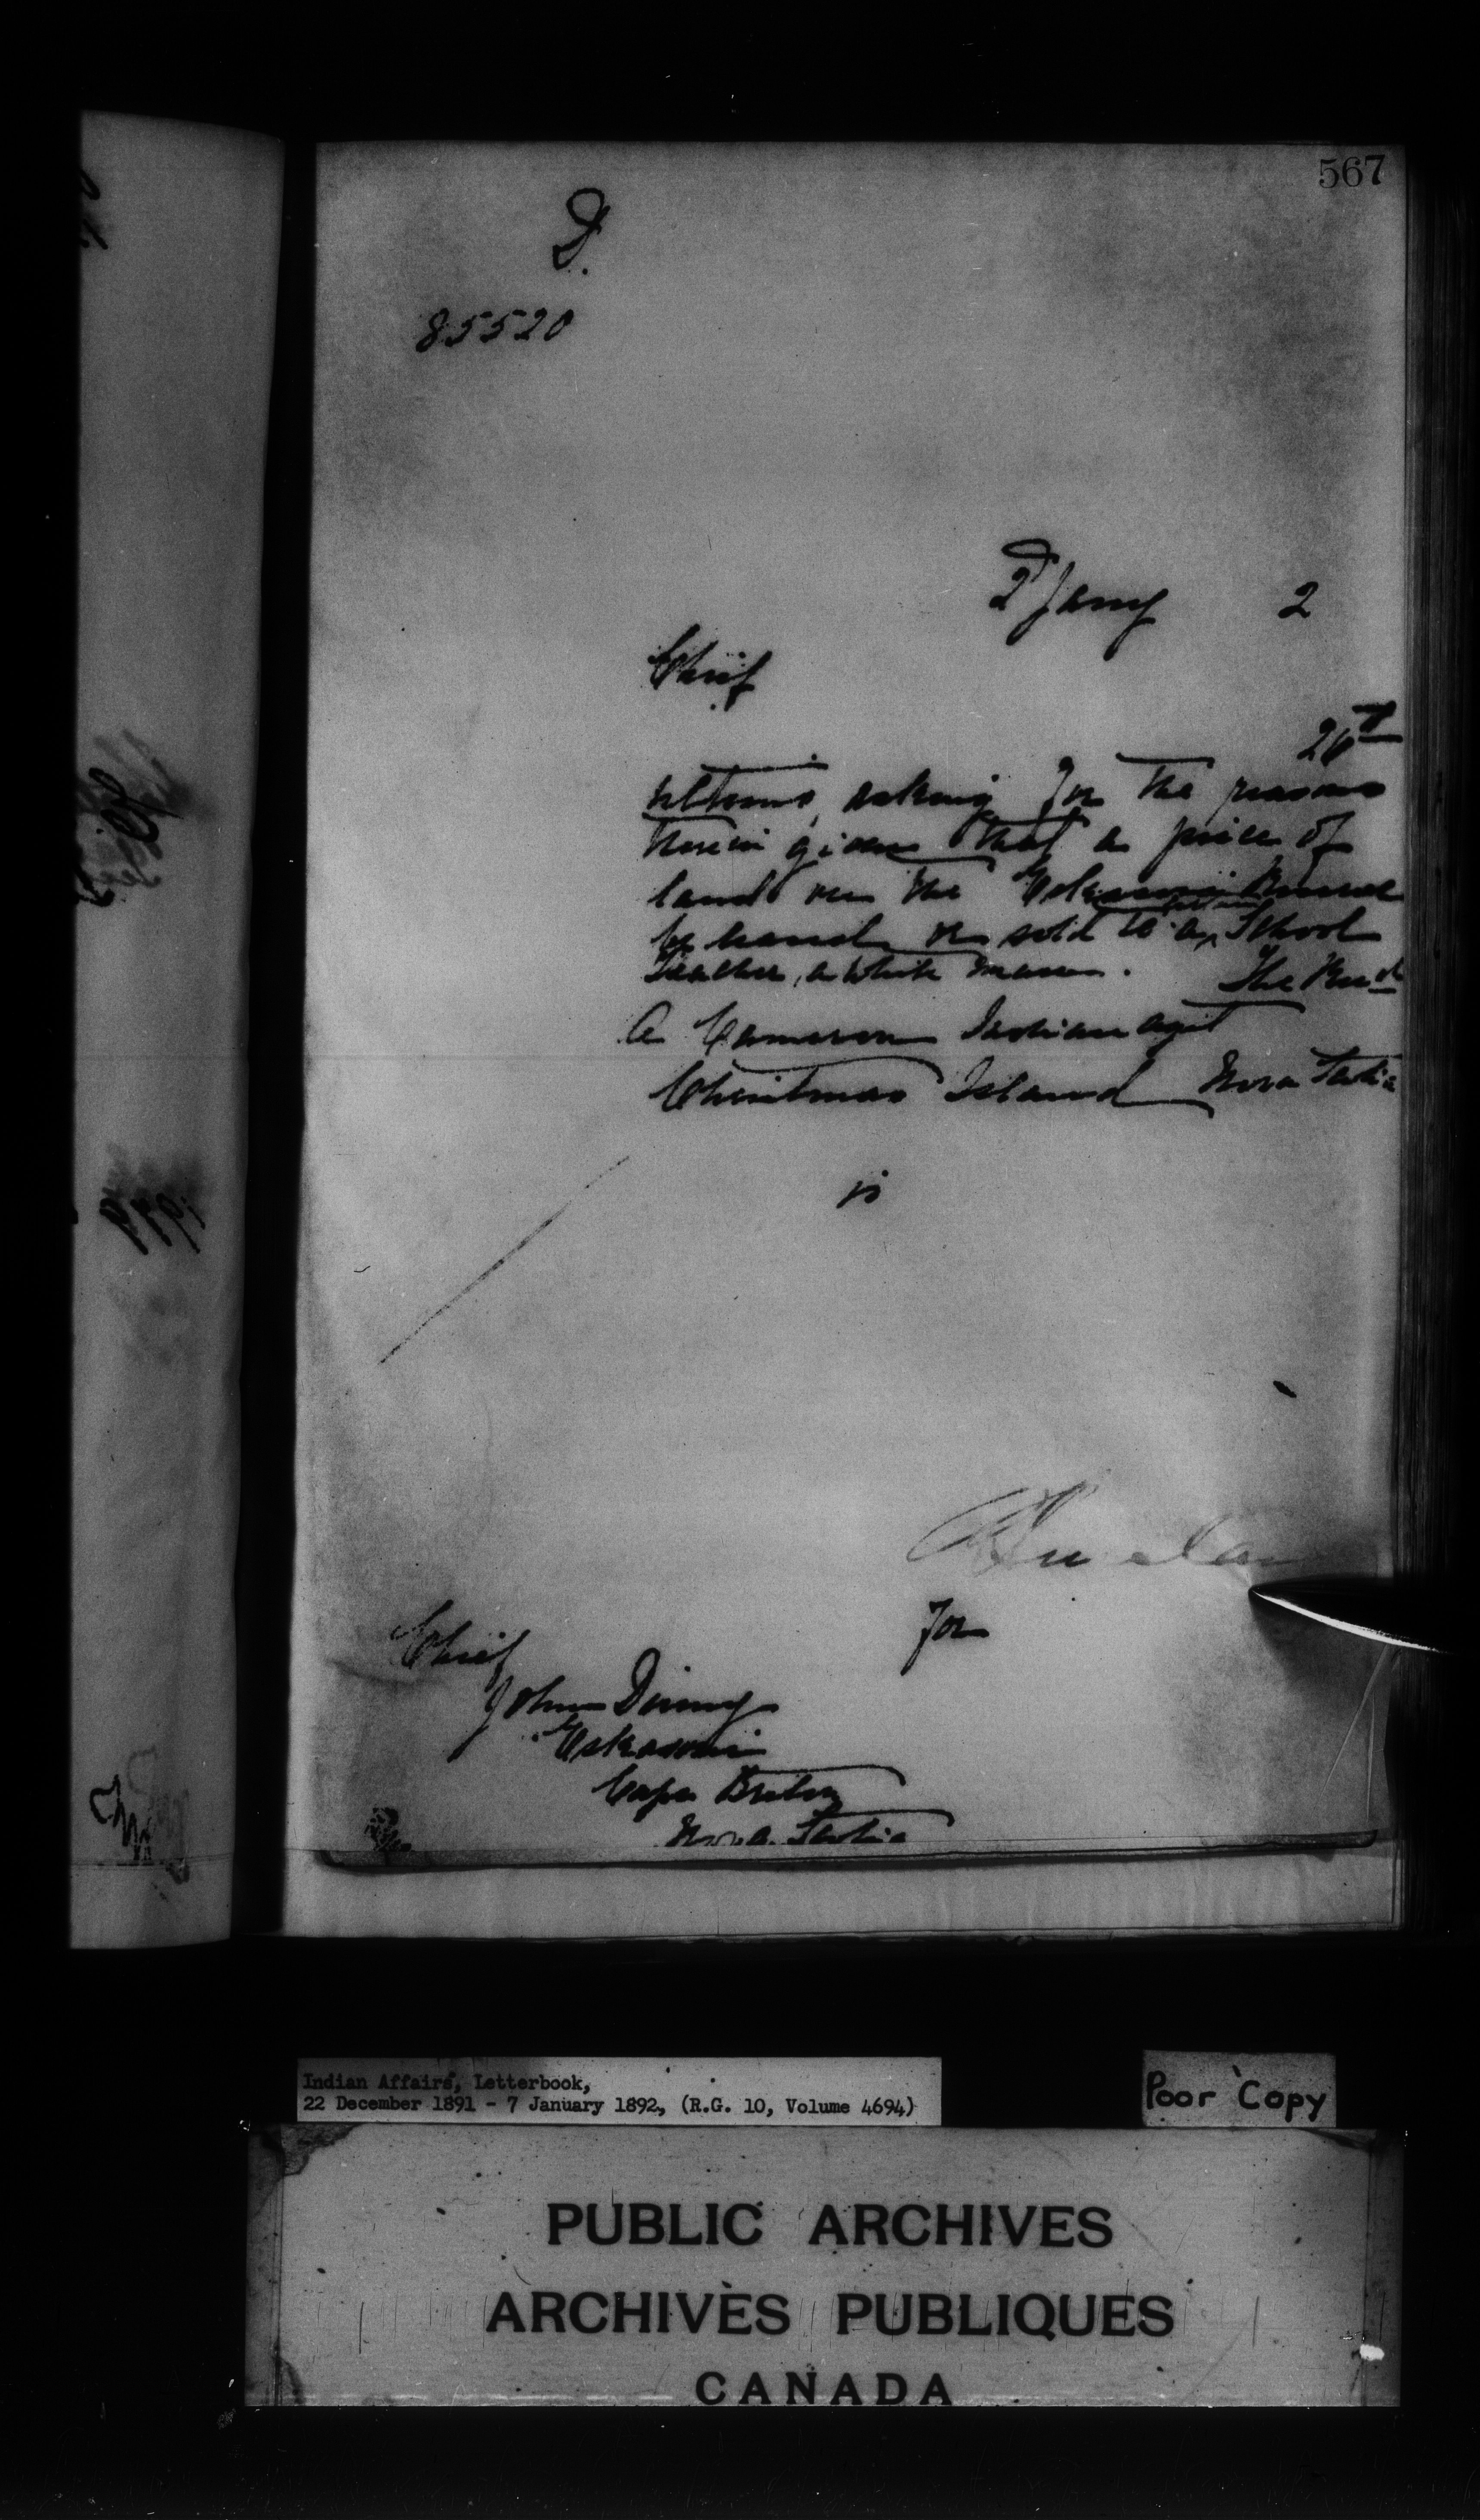 567
D.
85520
2d Jany 2
Chief
26th
ultimo, asking for the reasons
therein given that a piece of
land on the Eskasoni Reserve
be leased or sold to a School
Teacher, a white man. The Revd
A Cameron Indian agent
Christmas Island Nova Scotia
is
For
Chief
John Denny
Eskasoni
Cape Breton
Nova Scotia
Indian Affairs, Letterbook,
22 December 1891 - 7 January 1892, (R.G. 10, Volume 4694)
Poor Copy
PUBLIC ARCHIVES
ARCHIVES PUBLIQUES
CANADA